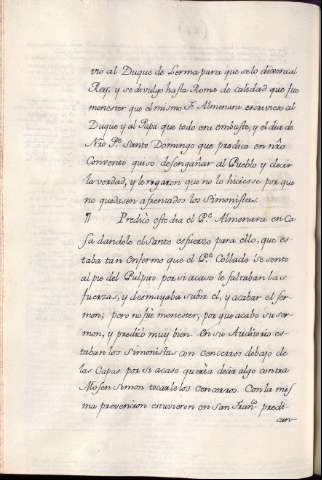 vió al Duque de Lerma para que se lo dixera al
Rey, y se divulgo hasta Roma de calidad que fue
menester que el mismo F. Almenara escriviese al
Duque y al Papa que todo era embuste, y el dia de
Nro P.e Santo Domingo que predico en nro
Convento quiso desengañar al Pueblo y decir
la verdad, y le rogaron que no lo hiciese por que
no quedasen afrentados los Simonistas.
¶ Predicò este dia el P.e Almenara en Ca-
sa dandole el Santo esfuerzo para ello, que es-
taba tan enfermo que el P.e Collado se sentò
al pie del Pulpito por si acaso le faltaban las
fuerzas, y desmayaba subir el, y acabar el ser-
mon; pero no fue menester, por que acabo su ser-
mon, y predicó muy bien. En su Auditorio es-
taban los Simonistas con cencerros debajo de
las Capas por si acaso queria decir algo contra
Mosen Simon tocarle los cencerros. Con la mis-
ma prevencion estuvieron en San Fran.co predi-
can-